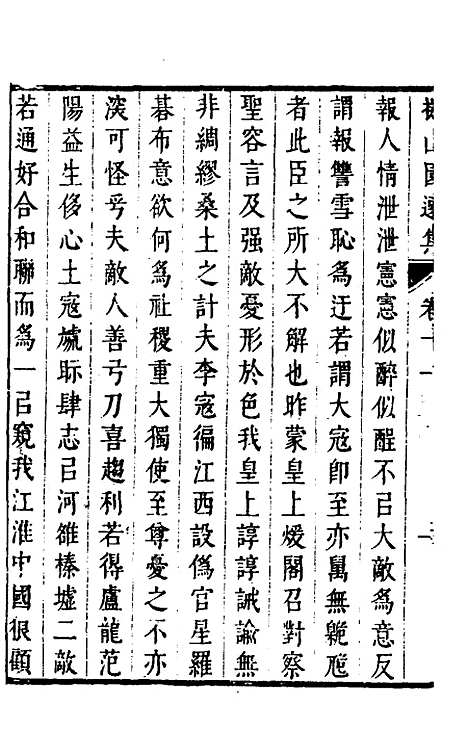 報人情泄泄憲憲似醉似酲不㠯大敵為意反
謂報讐雪恥為迂若謂大寇即至亦臲無
者此臣之所大不解也昨蒙皇上煖閣召對察
聖容言及强敵憂形於色我皇上諄諄誡諭無
非綢繆桑土之計夫李寇徧江西設偽官星羅
碁布意欲何為社稷重大獨使至尊憂之不亦
深可怪乎夫敵人善弓刀喜趨利若得盧龍范
陽益生侈心土寇虓眎肆志㠯河雒榛墟二敵
若通好合和聯而為一㠯窺我江淮中國狼顧